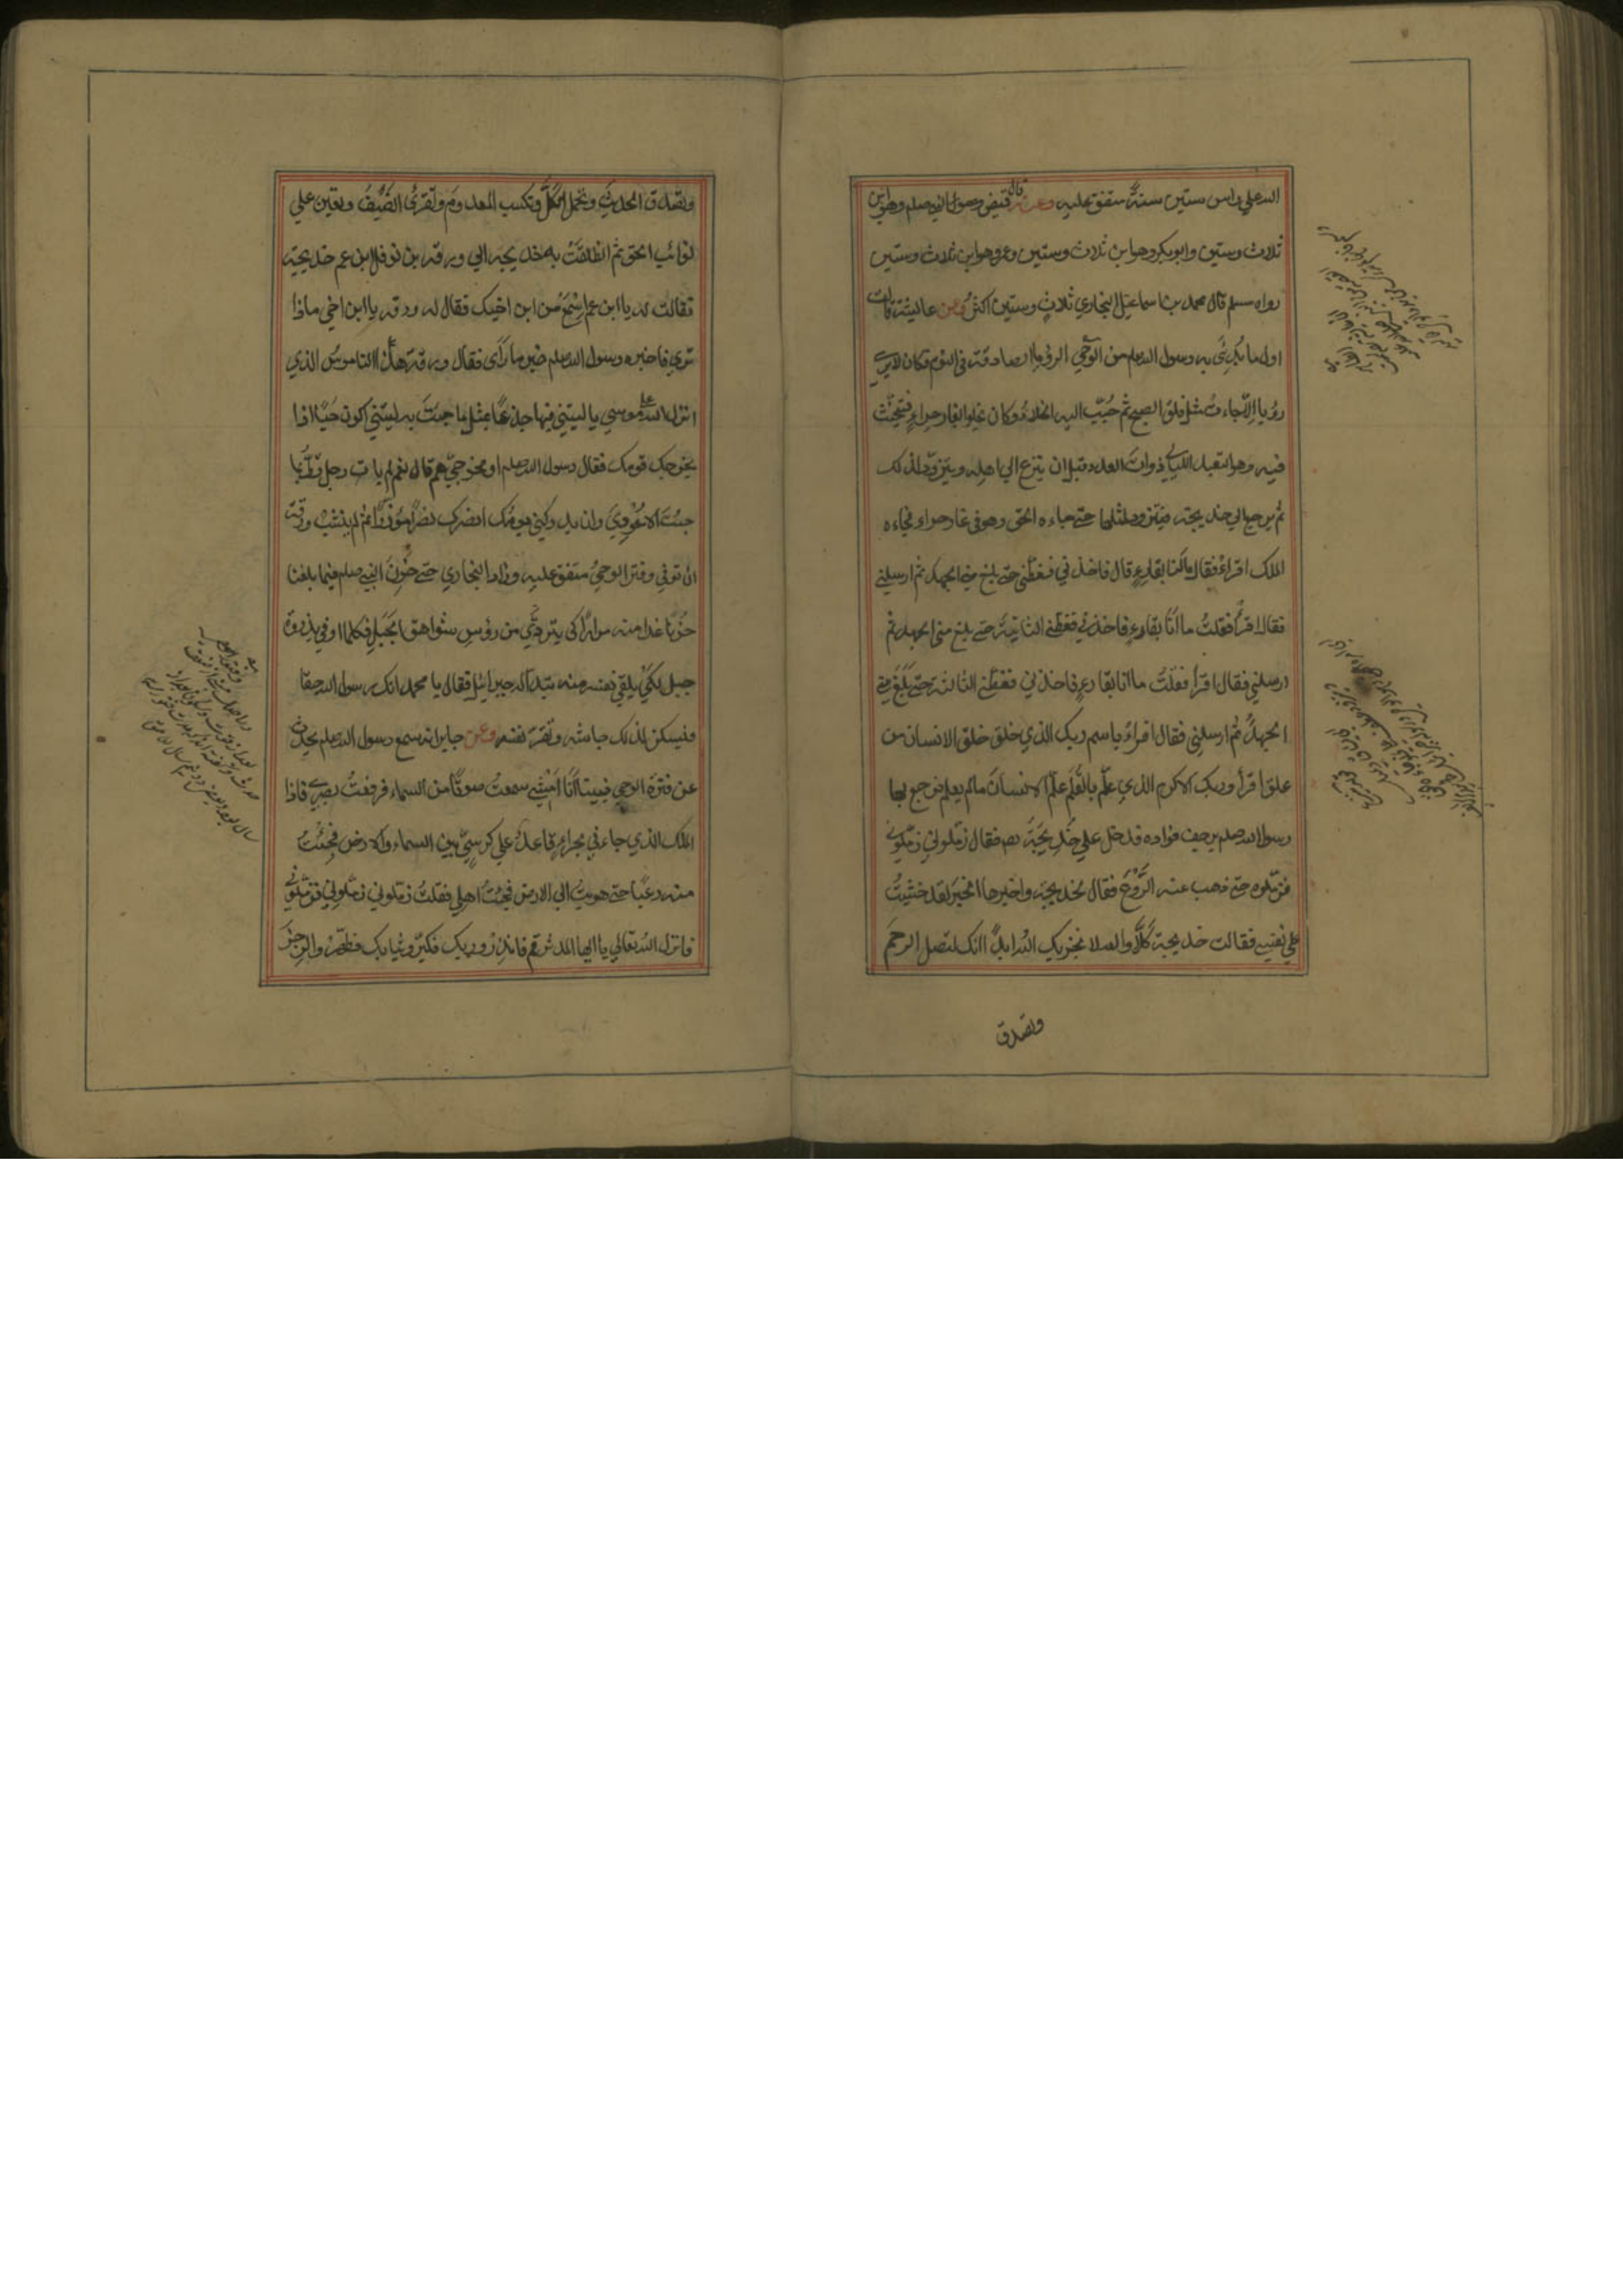 الله علي راس ستين سنة متفق عليه وعنه قال قبض رسول الله صلعم وهو ابن
ثلاث وستين وابو بكر وهو ابن ثلاث وستين وعمر وهو ابن ثلاث وستين
رواه مسلم قال محمد بن اسماعيل البخاري ثلاث وستين اكثر وعن عايشة قالت
اول ما بدئ به رسول الله صلعم من الوحي الرؤيا الصادقة في النوم فكان لا يري
رؤيا الا جاءت مثل فلق الصبح ثم حبب اليه الخلاء وكان يخلو بغار حراء فيتحنث
فيه وهو التعبد الليالي ذوات العدد قبل ان ينزع الي اهله ويتزود لذلك
ثم يرجع الي خديجة فيتزود لمثلها حتے جاءه الحق وهو في غار حراء فجاءه
الملك فقال اقراء فقال ما انا بقارء قال فاخذني فغطني حتے بلغ مني الجهد ثم ارسلني
فقال اقرأ فقلت ما انا بقارء فاخذني فغطني الثانية حتے بلغ مني الجهد ثم
ارسلني فقال اقرأ فقلت ما انا بقارء فاخذني فغطني الثالثة حتے بلغ مني
الجهد ثم ارسلني فقال اقراء باسم ربك الذي خلق خلق الانسان من
علق اقرأ وربك الاكرم الذي علم بالقلم علم الانسان ما لم يعلم فرجع بها
رسول الله صلعم يرجف فواده فدخل علي خديجة فقال زملوني زملوني
فزملوه حتے ذهب عنه الروع فقال لخديجة واخبرها الخبر لقد خشيت
علي نفسي فقالت خديجة كلا والله لا يخزيك الله ابدا انك لتصل الرحم
وتصدق
وتصدق الحديث وتحمل الكل وتكسب المعدوم وتقري الضيف وتعين علي
نوائب الحق ثم انطلقت به خديجة الي ورقة بن نوفل ابن عم خديجة
فقالت له يا ابن عم اسمع من ابن اخيك فقال له ورقة يا ابن اخي ماذا
تري فاخبره رسول الله صلعم خبر ما رأى فقال ورقة هذا الناموس الذي
انزل الله علے موسي يا ليتني فيها جذعا بمثل ما جئت به ليتني اكون حيا اذا
يخرجك قومك فقال رسول الله صلعم او مخرجي هم قال نعم لم يات رجل قط بما
جئت الا عودي وان يدركني يومك انصرك نصرا مؤزرا ثم لم ينشب ورقة
ان توفي وفتر الوحي متفق عليه وزاد البخاري حتے حزن النبي صلعم فيما بلغنا
حزنا غدا منه مرارا كي يتردي من رؤس شواهق الجبل فكلما اوفي بذروة
جبل لكي يلقي نفسه منه تبدا له جبرائيل فقال يا محمد انك رسول الله حقا
فيسكن لذلك جاشه وتقر نفسه وعن جابر انه سمع رسول الله صلعم يحدث
عن فترة الوحي فبينا انا امشي سمعت صوتا من السماء فرفعت بصري فاذا
الملك الذي جاءني بحراء قاعد علي كرسي بين السماء والارض فجئثت
منه رعبا حتے هويت الي الارض فجئت اهلي فقلت زملوني زملوني فزملوني
فانزل الله تعالي يا ايها المدثر قم فانذر وربك فكبر وثيابك فطهر والرجز